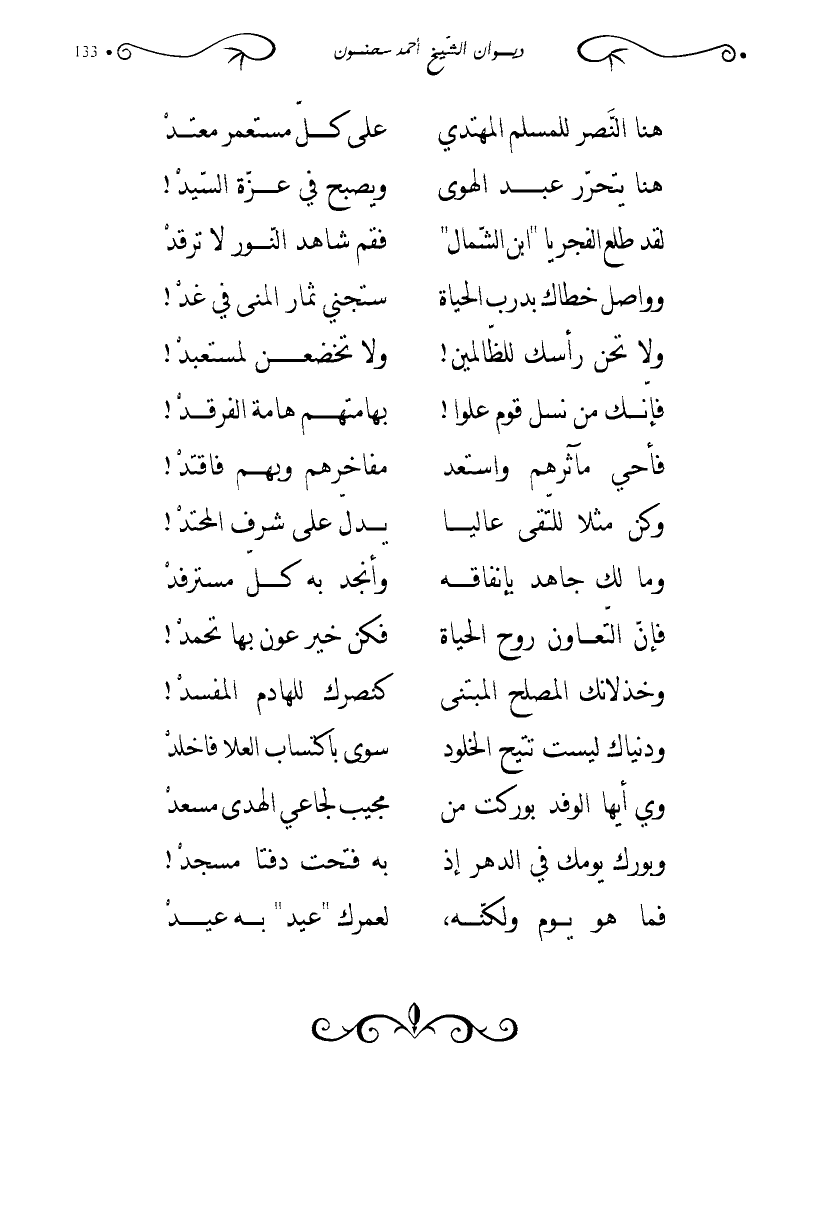 ديـوان الشّيخ أحمد سحنـون 133
هنا النَّصر للمسلم المهتدي على كـلّ مستعمر معتـدْ
هنا يتحرّر عبـد الهوى ويصبح في عـزّة السّيدْ !
لقد طلع الفجر يا "ابن الشّمال" فقم شاهد النّـور لا ترقدْ
وواصل خطاك بدرب الحياة ستجني ثمار المنى في غدْ !
ولا تحن رأسك للظّالمين! ولا تخضعـن لمستعبدْ !
فإنّـك من نسل قوم علوا ! بهامتهـم هامة الفرقـدْ !
فأحي مآثرهم واستعد مفاخرهم وبهـم فاقتدْ !
وكن مثلا للتّقى عاليـا يـدلّ على شرف المحتدْ !
وما لك جاهد بإنفاقـه وأنجد به كـلّ مسترفدْ
فإنّ التّعـاون روح الحياة فكن خير عون بها تحمدْ !
وخذلانك المصلح المبتنى كنصرك للهادم المفسدْ !
ودنياك ليست تتيح الخلود سوى باكتساب العلا فاخلدْ
وي أيها الوفد بوركت من مجيب لجاعي الهدى مسعدْ
وبورك يومك في الدهر إذ به فتحت دفتا مسجدْ !
فما هو يـوم ولكنّـه، لعمرك "عيد" بـه عيـدْ